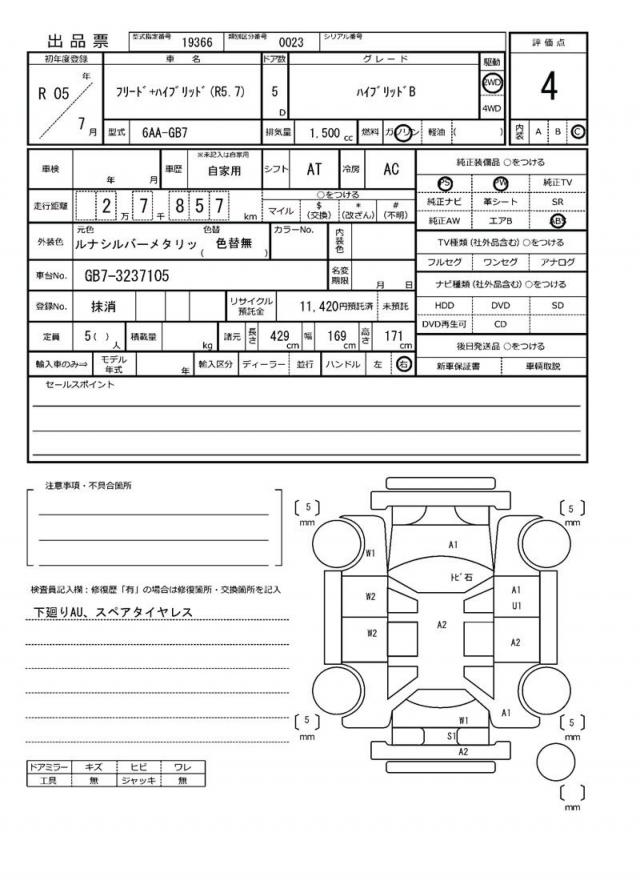 出品票 型式指定番号 19366 類別区分番号 0023 シリアル番号
評価点
4
内装 A B C
初年度登録 車名 ドア数 グレード 駆動
R 05 年 7 月 ﾌﾘｰﾄﾞ+ﾊｲﾌﾞﾘｯﾄﾞ(R5.7) 5 D ﾊｲﾌﾞﾘｯﾄﾞB 2WD
4WD
型式 6AA-GB7 排気量 1,500 cc 燃料 ガソリン 軽油 ( )
車検 年 月 車歴 ※未記入は自家用 自家用 シフト AT 冷房 AC
走行距離 2 万 7 千 8 5 7 km
○をつける
マイル $ (交換) * (改ざん) # (不明)
外装色 元色 ルナシルバーメタリッ 色替 ( 色替無 ) カラーNo. 内装色
車台No. GB7-3237105 名変期限 月 日
登録No. 抹消 リサイクル預託金 11,420円預託済 未預託
定員 5 ( ) 人 積載量 kg 諸元 長さ 429 cm 幅 169 cm 高さ 171 cm
輸入車のみ⇒ モデル年式 年 輸入区分 ディーラー 並行 ハンドル 左 右
純正装備品 ○をつける
PS PW 純正TV
純正ナビ 革シート SR
純正AW エアB ABS
TV種類(社外品含む)○をつける
フルセグ ワンセグ アナログ
ナビ種類(社外品含む)○をつける
HDD DVD SD
DVD再生可 CD
後日発送品 ○をつける
新車保証書 車輌取説
セールスポイント
注意事項・不具合箇所
検査員記入欄:修復歴「有」の場合は修復箇所・交換箇所を記入
下廻りAU、スペアタイヤレス
ドアミラー キズ ヒビ ワレ
工具 無 ジャッキ 無
[ 5 ] mm
[ 5 ] mm
W1
A1
ﾄﾋﾞ石
W2
A1
U1
W2
A2
A2
A1
W1
S1
A2
[ 5 ] mm
[ 5 ] mm
[ ] mm